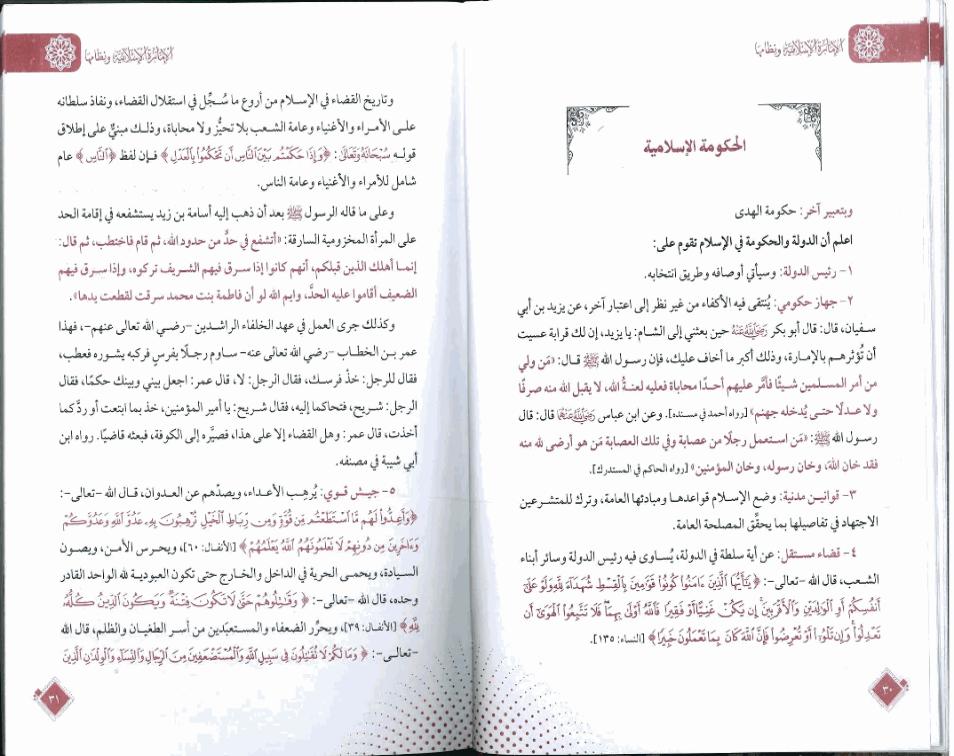 الإمارة الإسلامية ونظامها
الحكومة الإسلامية
وبتعبير آخر: حكومة الهدى
اعلم أن الدولة والحكومة في الإسلام تقوم على:
١- رئيس الدولة: وسيأتي أوصافه وطريق انتخابه.
٢- جهاز حكومي: يُنتقى فيه الأكفاء من غير نظر إلى اعتبار آخر، عن يزيد بن أبي
سفيان، قال: قال أبو بكر رَضِيَ اللَّهُ عَنْهُ حين بعثني إلى الشام: يا يزيد، إن لك قرابة عسيت
أن تُؤثرهم بالإمارة، وذلك أكبر ما أخاف عليك، فإن رسول الله ﷺ قال: «مَن ولي
من أمر المسلمين شيئًا فأمَّر عليهم أحدًا محاباة فعليه لعنةُ الله، لا يقبل الله منه صرفًا
ولا عدلًا حتى يُدخله جهنم» [رواه أحمد في مسنده]. وعن ابن عباس رَضِيَ اللَّهُ عَنْهُمَا قال: قال
رسول الله ﷺ: «مَن استعمل رجلًا من عصابة وفي تلك العصابة مَن هو أرضى لله منه
فقد خان اللهَ، وخان رسوله، وخان المؤمنين» [رواه الحاكم في المستدرك].
٣- قوانين مدنية: وضع الإسلام قواعدها ومبادئها العامة، وترك للمتشرعين
الاجتهاد في تفاصيلها بما يحقِّق المصلحة العامة.
٤- قضاء مستقل: عن أية سلطة في الدولة، يُساوى فيه رئيس الدولة وسائر أبناء
الشعب، قال الله -تعالى-: ﴿يَٰٓأَيُّهَا ٱلَّذِينَ ءَامَنُوا۟ كُونُوا۟ قَوَّٰمِينَ بِٱلْقِسْطِ شُهَدَآءَ لِلَّهِ وَلَوْ عَلَىٰٓ
أَنفُسِكُمْ أَوِ ٱلْوَٰلِدَيْنِ وَٱلْأَقْرَبِينَ إِن يَكُنْ غَنِيًّا أَوْ فَقِيرًا فَٱللَّهُ أَوْلَىٰ بِهِمَا فَلَا تَتَّبِعُوا۟ ٱلْهَوَىٰٓ أَن
تَعْدِلُوا۟ وَإِن تَلْوُۥٓا۟ أَوْ تُعْرِضُوا۟ فَإِنَّ ٱللَّهَ كَانَ بِمَا تَعْمَلُونَ خَبِيرًا﴾ [النساء: ١٣٥].
٣٠
الإمارة الإسلامية ونظامها
وتاريخ القضاء في الإسلام من أروع ما سُجِّل في استقلال القضاء، ونفاذ سلطانه
على الأمراء والأغنياء وعامة الشعب بلا تحيُّز ولا محاباة، وذلك مبنيٌّ على إطلاق
قوله سُبْحَانَهُ وَتَعَالَى: ﴿وَإِذَا حَكَمْتُم بَيْنَ ٱلنَّاسِ أَن تَحْكُمُوا۟ بِٱلْعَدْلِ﴾ فإن لفظ ﴿ٱلنَّاسِ﴾ عام
شامل للأمراء والأغنياء وعامة الناس.
وعلى ما قاله الرسول ﷺ بعد أن ذهب إليه أسامة بن زيد يستشفعه في إقامة الحد
على المرأة المخزومية السارقة: «أتشفع في حدٍّ من حدود الله، ثم قام فاختطب، ثم قال:
إنما أهلك الذين قبلكم، أنهم كانوا إذا سرق فيهم الشريف تركوه، وإذا سرق فيهم
الضعيف أقاموا عليه الحدَّ، وايم الله لو أن فاطمة بنت محمد سرقت لقطعت يدها».
وكذلك جرى العمل في عهد الخلفاء الراشدين -رضي الله تعالى عنهم-، فهذا
عمر بن الخطاب -رضي الله تعالى عنه- ساوم رجلًا بفرسٍ فركبه يشوره فعطب،
فقال للرجل: خذْ فرسك، فقال الرجل: لا، قال عمر: اجعل بيني وبينك حكمًا، فقال
الرجل: شريح، فتحاكما إليه، فقال شريح: يا أمير المؤمنين، خذ بما ابتعت أو ردَّ كما
أخذت، قال عمر: وهل القضاء إلا على هذا، فصيَّره إلى الكوفة، فبعثه قاضيًا. رواه ابن
أبي شيبة في مصنفه.
٥- جيش قوي: يُرهب الأعداء، ويصدّهم عن العدوان، قال الله -تعالى-:
﴿وَأَعِدُّوا۟ لَهُم مَّا ٱسْتَطَعْتُم مِّن قُوَّةٍ وَمِن رِّبَاطِ ٱلْخَيْلِ تُرْهِبُونَ بِهِۦ عَدُوَّ ٱللَّهِ وَعَدُوَّكُمْ
وَءَاخَرِينَ مِن دُونِهِمْ لَا تَعْلَمُونَهُمُ ٱللَّهُ يَعْلَمُهُمْ﴾ [الأنفال: ٦٠]، ويحرس الأمن، ويصون
السيادة، ويحمى الحرية في الداخل والخارج حتى تكون العبودية لله الواحد القادر
وحده، قال الله -تعالى-: ﴿وَقَٰتِلُوهُمْ حَتَّىٰ لَا تَكُونَ فِتْنَةٌ وَيَكُونَ ٱلدِّينُ كُلُّهُۥ
لِلَّهِ﴾ [الأنفال: ٣٩]، ويحرُّر الضعفاء والمستعبَدين من أسر الطغيان والظلم، قال الله
-تعالى-: ﴿وَمَا لَكُمْ لَا تُقَٰتِلُونَ فِى سَبِيلِ ٱللَّهِ وَٱلْمُسْتَضْعَفِينَ مِنَ ٱلرِّجَالِ وَٱلنِّسَآءِ وَٱلْوِلْدَٰنِ ٱلَّذِينَ
٣١